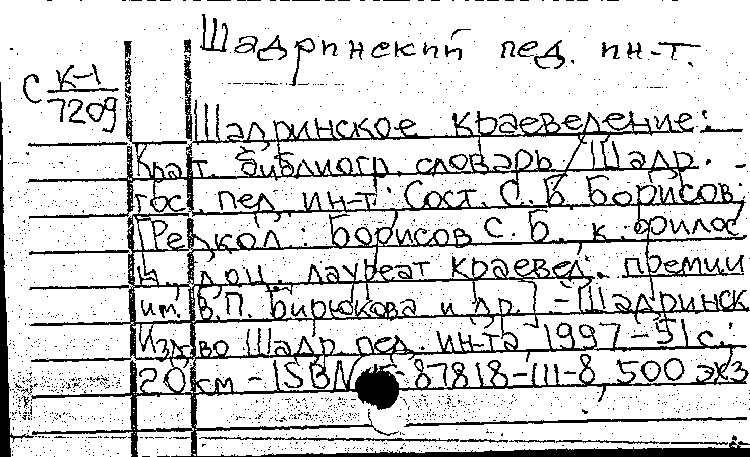 Шадринский пед. ин-т.
С К-1
7209
Шадринское краеведение:
Крат. библиогр. словарь / Шадр.
гос. пед. ин-т; Сост. С. Б. Борисов;
[Редкол.: Борисов С. Б. к. филос
н., доц., лауреат краевед. премии
им. В. П. Бирюкова и др.] - Шадринск
Изд-во Шадр. пед. ин-та, 1997 - 51 с.;
20 см - ISBN 87818-111-8, 500 экз